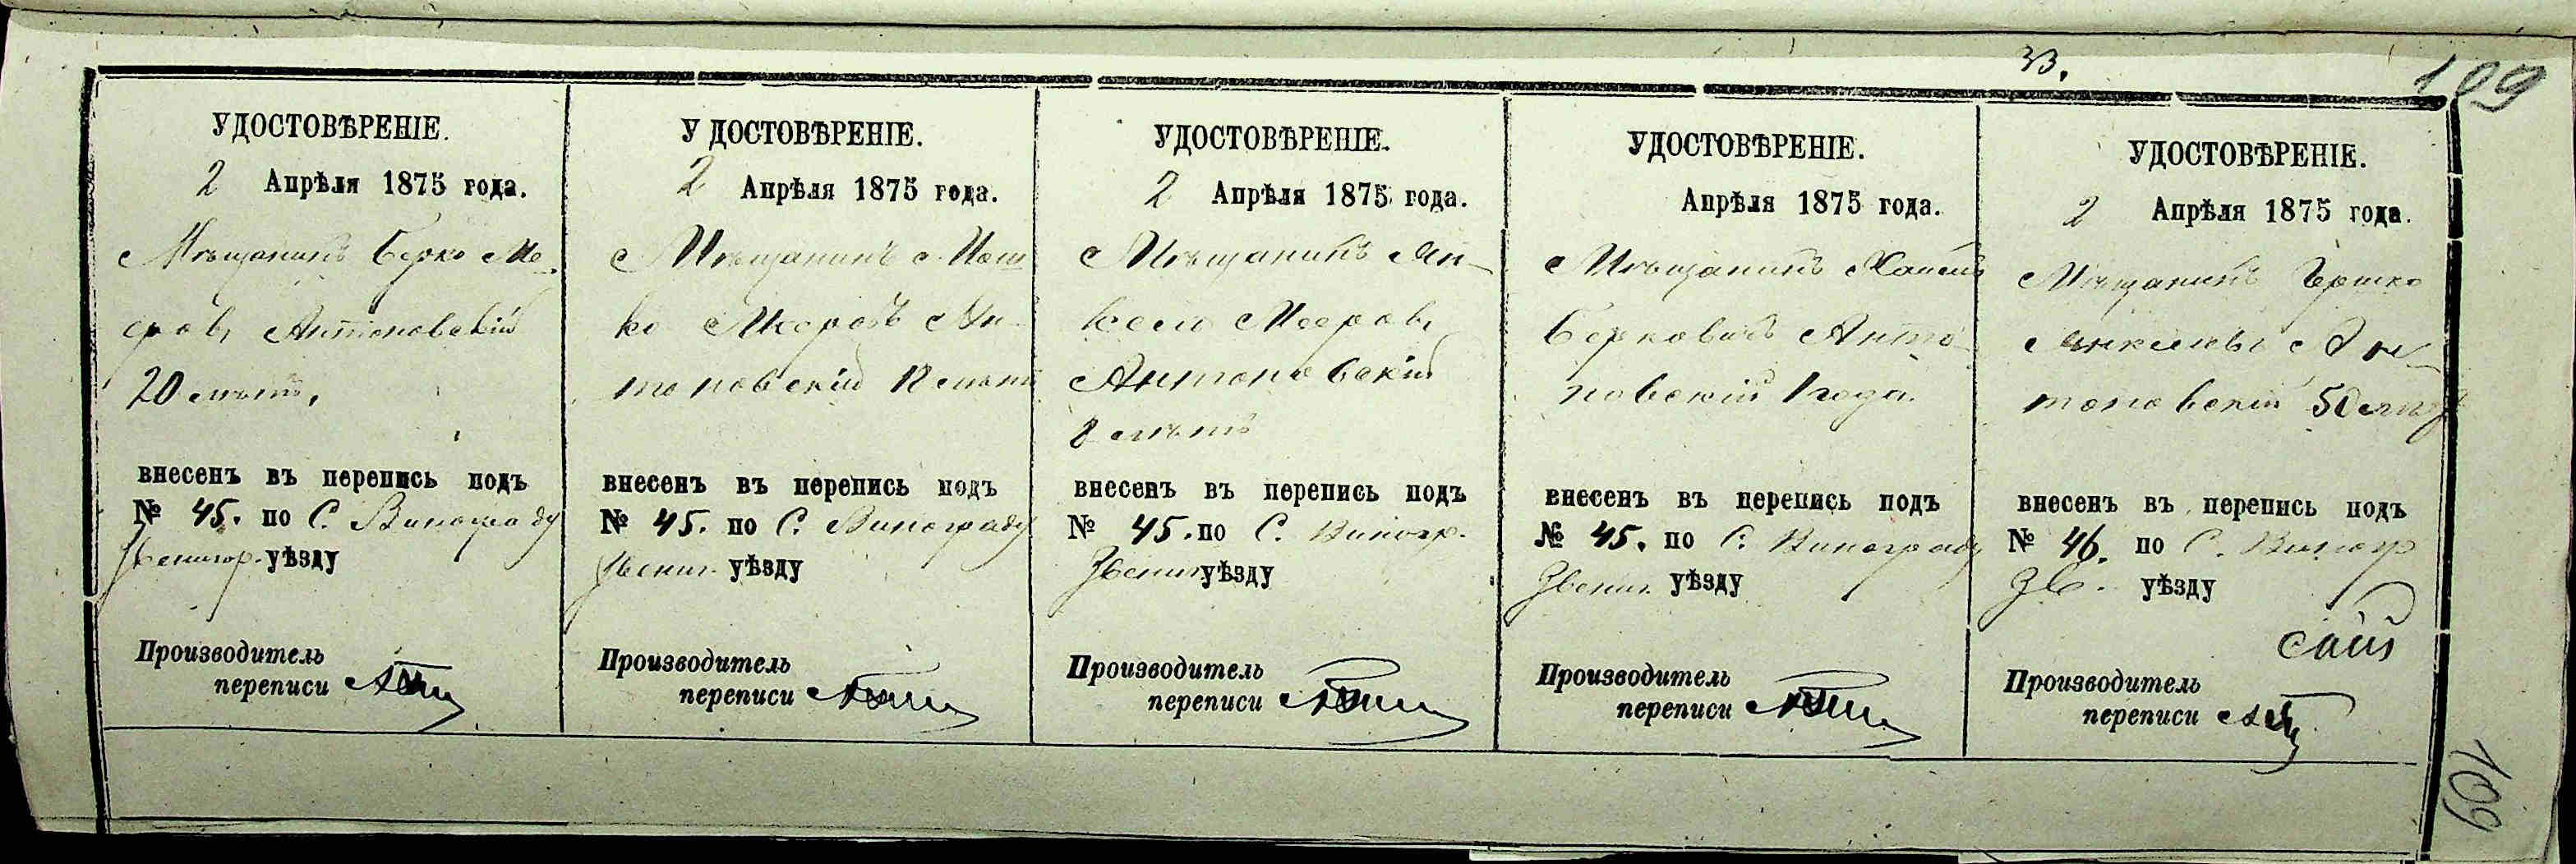 33.
109
УДОСТОВѢРЕНІЕ.
2 Апрѣля 1875 года.
Мѣщанинъ Берко Ме-
еровъ Антоновскій
20 лѣтъ,
внесенъ въ перепись подъ
№ 45. по С. Винограду
Звенигор. уѣзду
Производитель
переписи
УДОСТОВѢРЕНІЕ.
2 Апрѣля 1875 года.
Мѣщанинъ Мош
ко Мееровъ Ан-
тоновскій 12 лѣтъ
внесенъ въ перепись подъ
№ 45. по С. Винограду
Звениг. уѣзду
Производитель
переписи
УДОСТОВѢРЕНІЕ.
2 Апрѣля 1875 года.
Мѣщанинъ Ян-
кель Мееровъ
Антоновскій
8 лѣтъ
внесенъ въ перепись подъ
№ 45. по С. Виногр.
Звениг уѣзду
Производитель
переписи
УДОСТОВѢРЕНІЕ.
Апрѣля 1875 года.
Мѣщанинъ
Берковичъ Анто
новскій 1 года.
внесенъ въ перепись подъ
№ 45. по С. Винограду
Звениг. уѣзду
Производитель
переписи
УДОСТОВѢРЕНІЕ.
2 Апрѣля 1875 года.
Мѣщанинъ Гершко
Янкелевъ Ан
тоновскій 50 лѣтъ
внесенъ въ перепись подъ
№ 46. по С. Виногр
Зв. уѣзду
Производитель
переписи
109